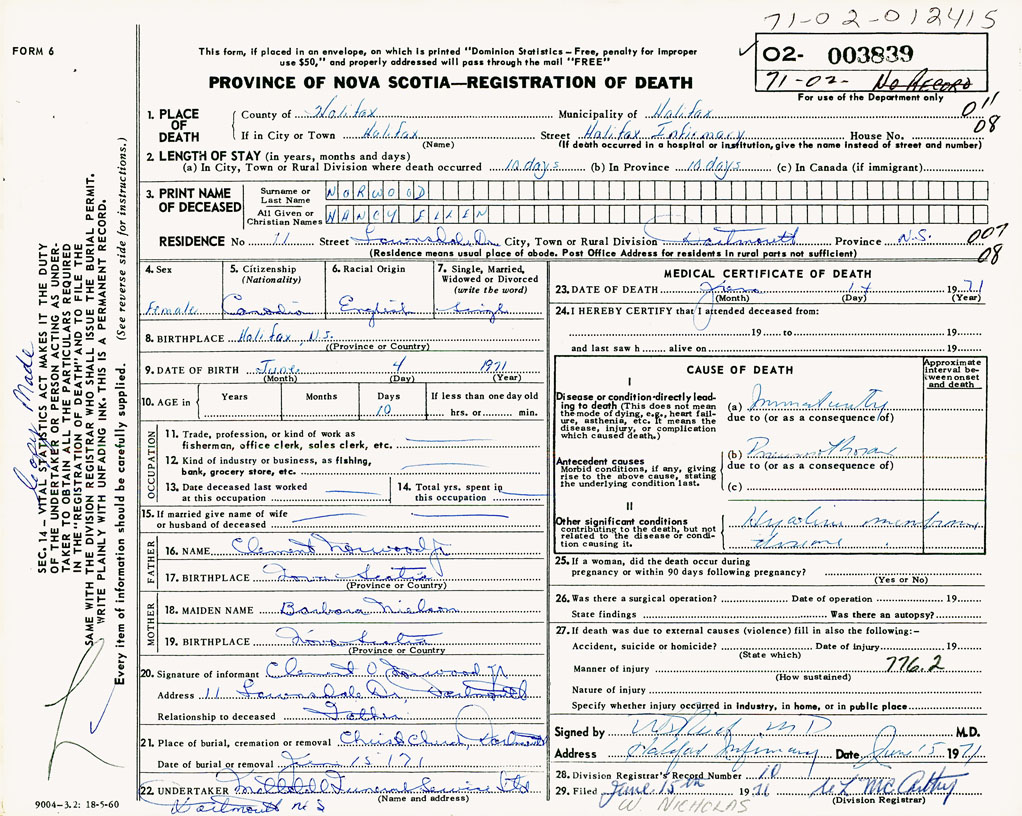 71-02-012415
FORM 6
This form, if placed in an envelope, on which is printed "Dominion Statistics – Free, penalty for improper
use $50," and properly addressed will pass through the mail "FREE"
02- 003839
71-02- No RECORD
For use of the Department only
PROVINCE OF NOVA SCOTIA—REGISTRATION OF DEATH
011
08
1. PLACE OF DEATH
County of Halifax Municipality of Halifax
If in City or Town Halifax Street Halifax Infirmary House No.
(Name) (If death occurred in a hospital or institution, give the name instead of street and number)
2. LENGTH OF STAY (in years, months and days)
(a) In City, Town or Rural Division where death occurred 10 days (b) In Province 10 days (c) In Canada (if immigrant)
3. PRINT NAME OF DECEASED
Surname or Last Name NORWOOD
All Given or Christian Names NANCY ELLEN
RESIDENCE No 11 Street Lawnsdale Dr. City, Town or Rural Division Dartmouth Province N.S. 007
08
(Residence means usual place of abode. Post Office Address for residents in rural parts not sufficient)
4. Sex
Female
5. Citizenship
(Nationality)
6. Racial Origin
English
7. Single, Married, Widowed or Divorced
(write the word)
Single
8. BIRTHPLACE Halifax, N.S.
((Province or Country)
9. DATE OF BIRTH June 4 1971
(Month) (Day) (Year)
10. AGE in
Years
Months
Days
10
If less than one day old
hrs. or min.
OCCUPATION
11. Trade, profession, or kind of work as
fisherman, office clerk, sales clerk, etc.
12. Kind of industry or business, as fishing,
bank, grocery store, etc.
13. Date deceased last worked
at this occupation
14. Total yrs. spent in
this occupation
15. If married give name of wife
or husband of deceased
FATHER
16. NAME Clement Norwood Jr
17. BIRTHPLACE Nova Scotia
(Province or Country)
MOTHER
18. MAIDEN NAME Barbara Nielson
19. BIRTHPLACE Nova Scotia
(Province or Country
20. Signature of informant Clement O. Norwood Jr
Address 11 Lawnsdale Dr, Dartmouth
Relationship to deceased Father
21. Place of burial, cremation or removal Christ Church, Dartmouth
Date of burial or removal June 15 171
22. UNDERTAKER Funeral Service Ltd
(Name and address)
Dartmouth NS
9004—3.2: 18-5-60
MEDICAL CERTIFICATE OF DEATH
23. DATE OF DEATH June 14 1971
(Month) (Day) (Year)
24. I HEREBY CERTIFY that I attended deceased from:
19 to 19
and last saw h alive on 19
CAUSE OF DEATH
Approximate interval between onset and death
I
Disease or condition directly leading to death (This does not mean the mode of dying, e.g., heart failure, asthenia, etc. It means the disease, injury, or complication which caused death.)
(a) Immaturity
due to (or as a consequence of)
Antecedent causes
Morbid conditions, if any, giving rise to the above cause, stating the underlying condition last.
(b) Pneumothorax
due to (or as a consequence of)
(c)
II
Other significant conditions
contributing to the death, but not related to the disease or condition causing it.
Hyaline membrane
disease
25. If a woman, did the death occur during
pregnancy or within 90 days following pregnancy?
(Yes or No)
26. Was there a surgical operation? Date of operation 19
State findings Was there an autopsy?
27. If death was due to external causes (violence) fill in also the following:–
Accident, suicide or homicide? Date of injury 19
(State which)
Manner of injury 776.2
(How sustained)
Nature of injury
Specify whether injury occurred in industry, in home, or in public place
Signed by M D M.D.
Address Halifax Infirmary Date June 15 1971
28. Division Registrar's Record Number 10
29. Filed June 15th 1971 McCarthy
(Division Registrar)
W. NICHOLAS
Copy Made
SEC. 14 – VITAL STATISTICS ACT MAKES IT THE DUTY
OF THE UNDERTAKER OR PERSON ACTING AS UNDER-
TAKER TO OBTAIN ALL THE PARTICULARS REQUIRED
IN THE "REGISTRATION OF DEATH" AND TO FILE THE
SAME WITH THE DIVISION REGISTRAR WHO SHALL ISSUE THE BURIAL PERMIT.
WRITE PLAINLY WITH UNFADING INK. THIS IS A PERMANENT RECORD.
Every item of information should be carefully supplied. (See reverse side for instructions.)